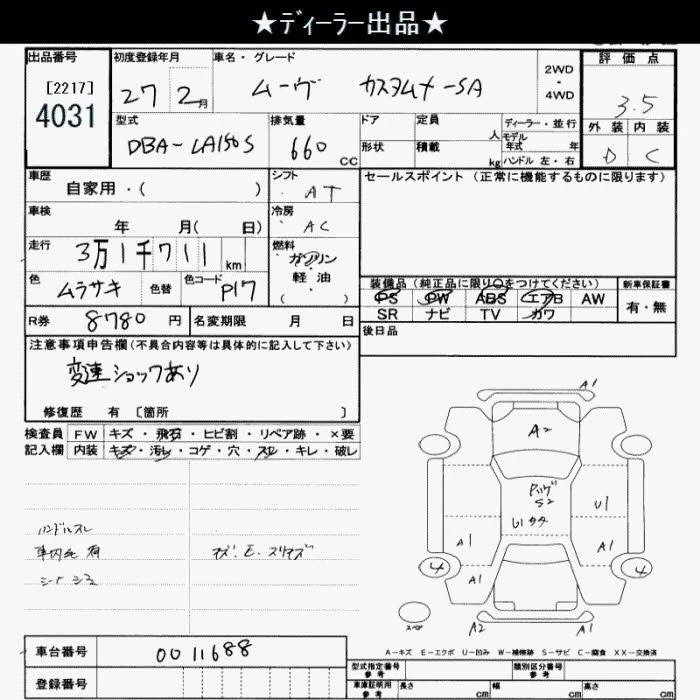 ★ディーラー出品★
出品番号 初度登録年月 車名・グレード 2WD・4WD 評価点
[2217] 4031 27年 2月 ムーヴ カスタム SA 3.5
型式 排気量 ドア 定員 人 ディーラー・並行 外装 内装
DBA-LA150S 660 CC 形状 積載 kg モデル年式 年 D C
ハンドル 左・右
車歴 自家用・( ) シフト AT セールスポイント(正常に機能するものに限ります)
車検 年 月( 日) 冷房 AC
走行 3万1千711 km 燃料 ガソリン
軽油
( )
色 ムラサキ 色替 色コード P17
装備品(純正品に限り○をつけてください) 新車保証書
PS PW ABS エアB AW 有・無
SR ナビ TV カワ
R券 8780円 名変期限 月 日 後日品
注意事項申告欄(不具合内容等は具体的に記入して下さい)
変速ショックあり
修復歴 有 〔箇所 〕
検査員 FW キズ・飛石・ヒビ割・リペア跡・×要
記入欄 内装 キズ・汚レ・コゲ・穴・スレ・キレ・破レ
A1
A2
S2
U1
U1
A1 A1
4 4
A1 A1
A2 A1
ハンドルスレ
車内 有
シートシミ
キズ.E.スリキズ
スペア
A-キズ E-エクボ U-凹み W-補修跡 S-サビ C-腐食 XX-交換済
車台番号 0011688
型式指定番号 参考 類別区分番号 参考
登録番号
車庫証明用 参考 長さ cm 幅 cm 高さ cm